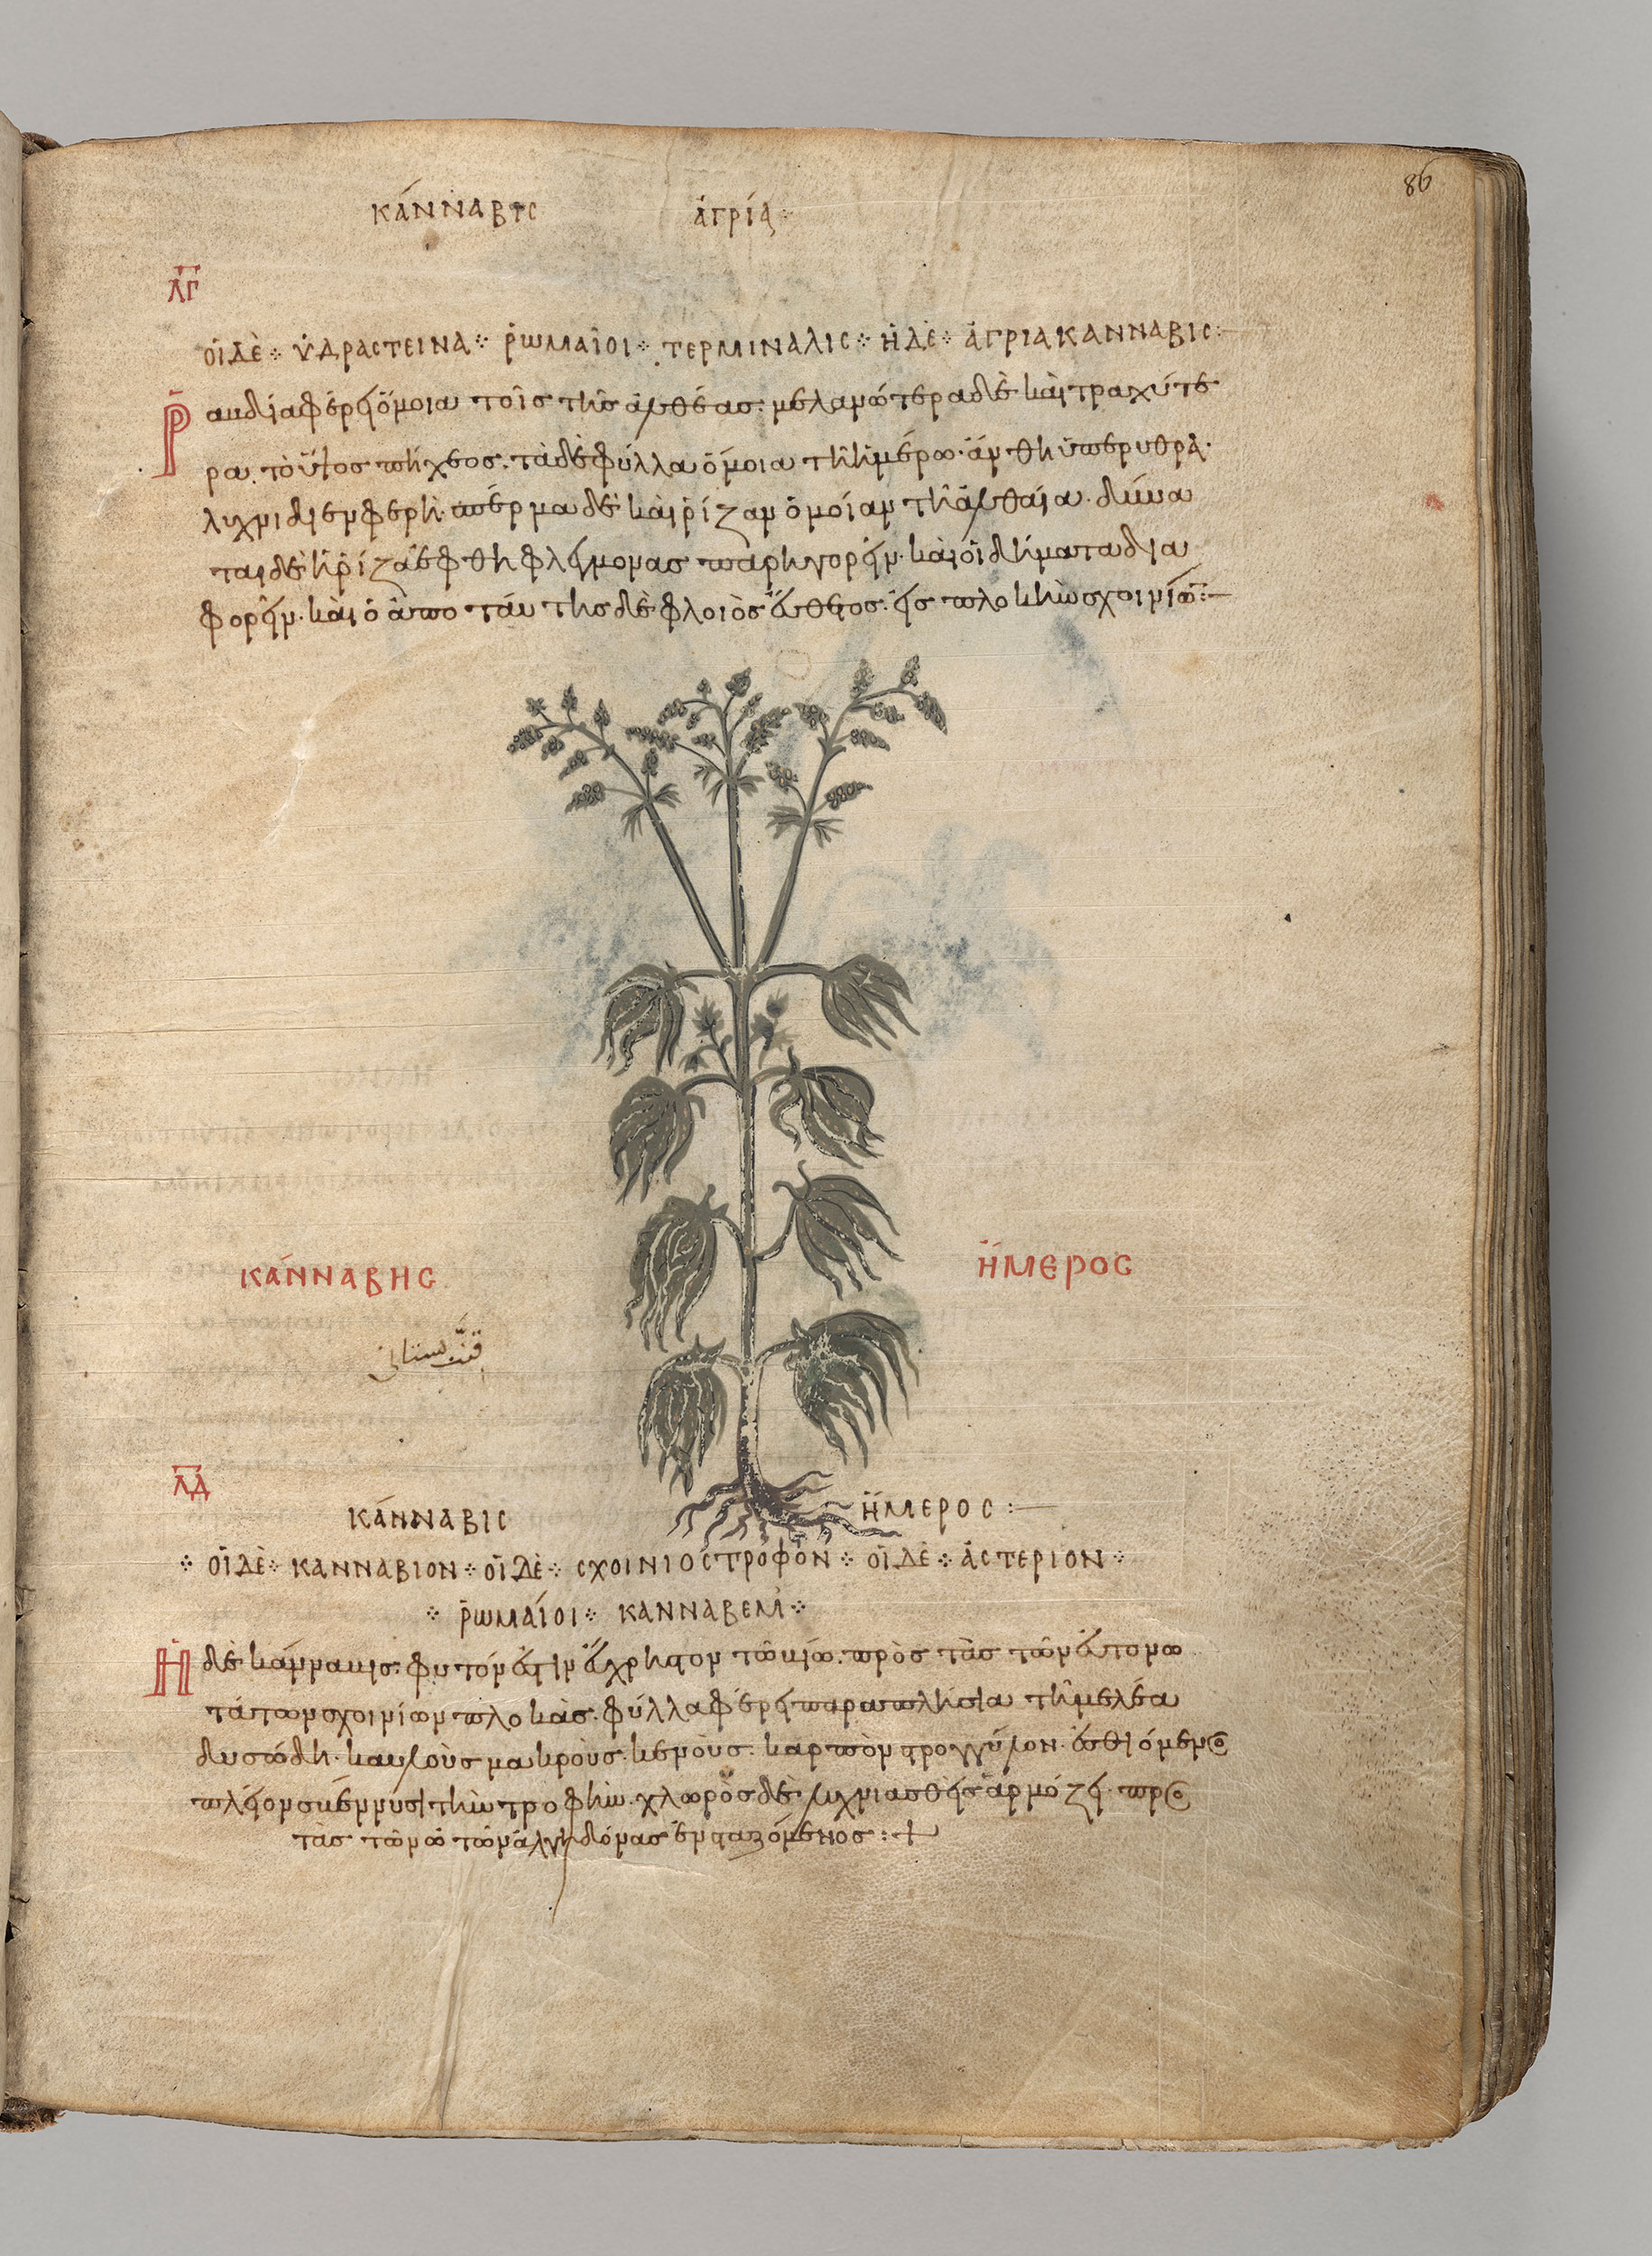 86
κάνναβις ἀγρία
ΛΓ
οἱ δὲ ὑδραστεινα ῥωμαῖοι τερμινάλις ἡ δὲ ἀγρια κανναβις
Ῥαβδία φέρει ὅμοια τοῖς τῆς ἀλθέας μελανώτερα δὲ καὶ τραχύτε
ρα τὸ ὕψος πήχεος τὰ δὲ φύλλα ὅμοια τῆ ἡμέρω ἄνθη ὑπερυθρὰ
λυχνιδι ενφερῆ σπέρμα δὲ καὶ ῥίζαν ὁμοίαν τῆ ἀλθαία δύνα
ται δὲ ἡ ῥίζα ἑφθη φλεγμονας παρηγορεῖν καὶ οἰδήματα δια
φορεῖν καὶ ὁ ἀπο ταύτης δὲ φλοιὸς εἰς πλοκὴν σχοινίων
κάνναβης ἥμερος
قنّب بستاني
ΛΔ
κάνναβις ἥμερος
οἱ δὲ κανναβιον οἱ δὲ σχοινιόστροφον οἱ δὲ ἀστεριον
ῥωμαίοι κανναβεμ
Ἡ δὲ κάνναβις φυτόν ἐστιν εὔχρηστον τῶ βίω πρὸς τὰς τῶν εὐτονω
τάτων σχοινίων πλοκὰς φύλλα φέρει παραπλήσια τῆ μελέα
δυσώδη καυλοὺς μακροὺς κενοὺς καρπὸν στρογγύλον ἐσθιόμενος
πλείον σβέννυσι τὴν γονὴν χλωρὸς δὲ